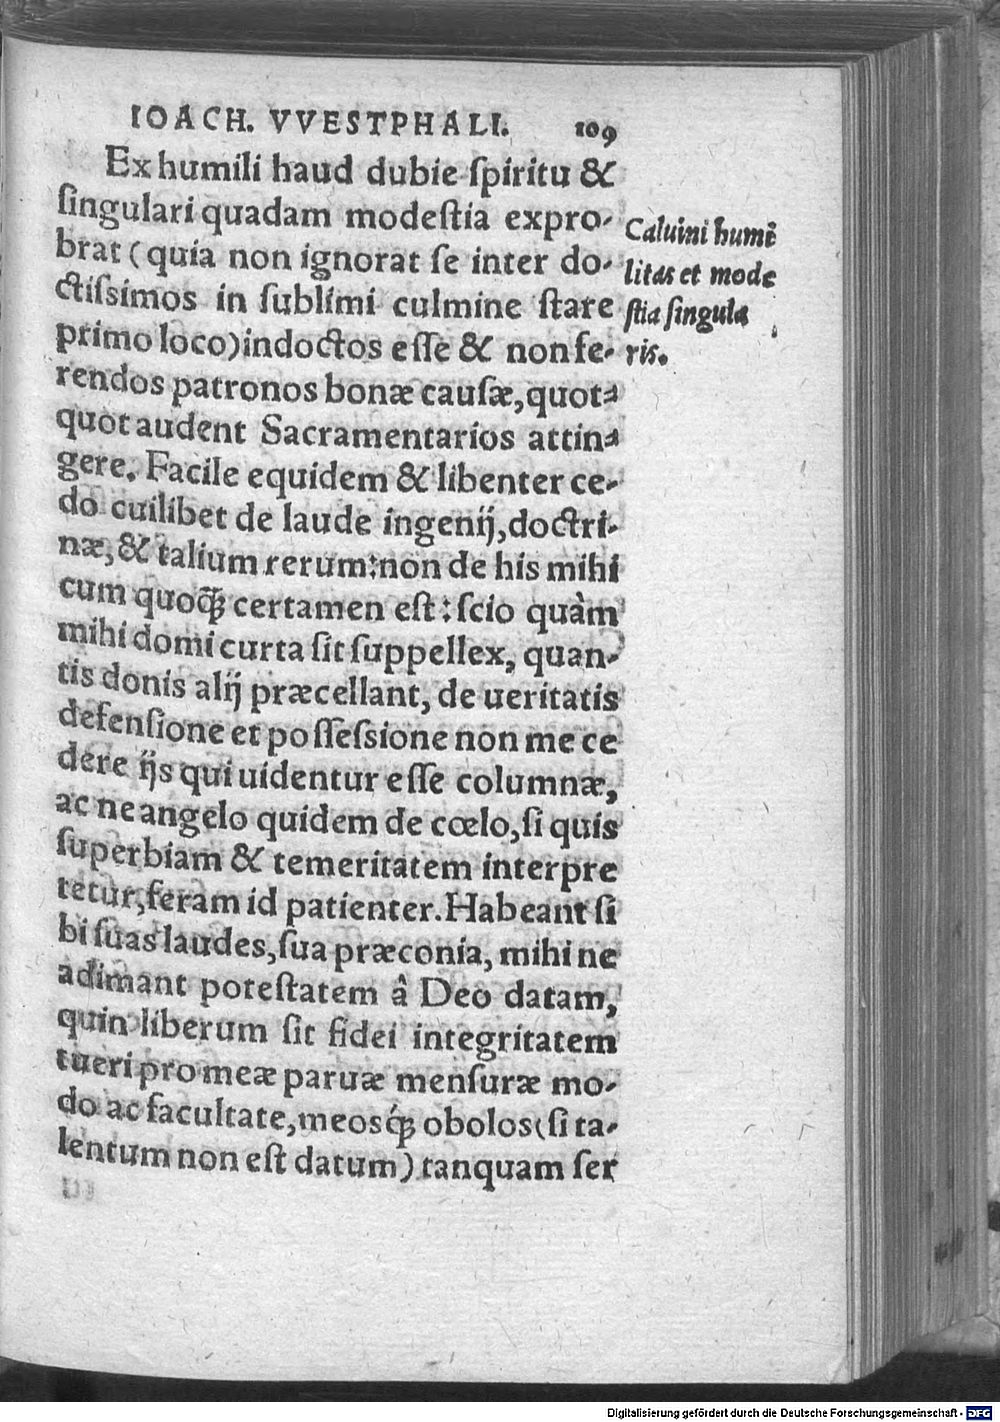 IOACH. VVESTPHALI. 109
Ex humili haud dubie ſpiritu &
ſingulari quadam modeſtia expro-
brat (quia non ignorat ſe inter do-
ctiſsimos in ſublimi culmine ſtare
primo loco) indoctos eſſe & non fe-
rendos patronos bonæ cauſæ, quot-
quot audent Sacramentarios attin-
gere. Facile equidem & libenter ce-
do cuilibet de laude ingenij, doctri-
næ, & talium rerum: non de his mihi
cum quoq́; certamen eſt: ſcio quàm
mihi domi curta ſit ſuppellex, quan-
tis donis alij præcellant, de ueritatis
defenſione et poſſeſsione non me ce
dere ijs qui uidentur eſſe columnæ,
ac ne angelo quidem de cœlo, ſi quis
ſuperbiam & temeritatem interpre
tetur, feram id patienter. Habeant ſi
bi ſuas laudes, ſua præconia, mihi ne
adimant poteſtatem â Deo datam,
quin liberum ſit fidei integritatem
tueri pro meæ paruæ menſuræ mo-
do ac facultate, meosq́; obolos (ſi ta-
lentum non eſt datum) tanquam ſer
Caluini humi
litas et mode
ſtia ſingula
ris.
Digitalisierung gefördert durch die Deutsche Forschungsgemeinschaft - DFG